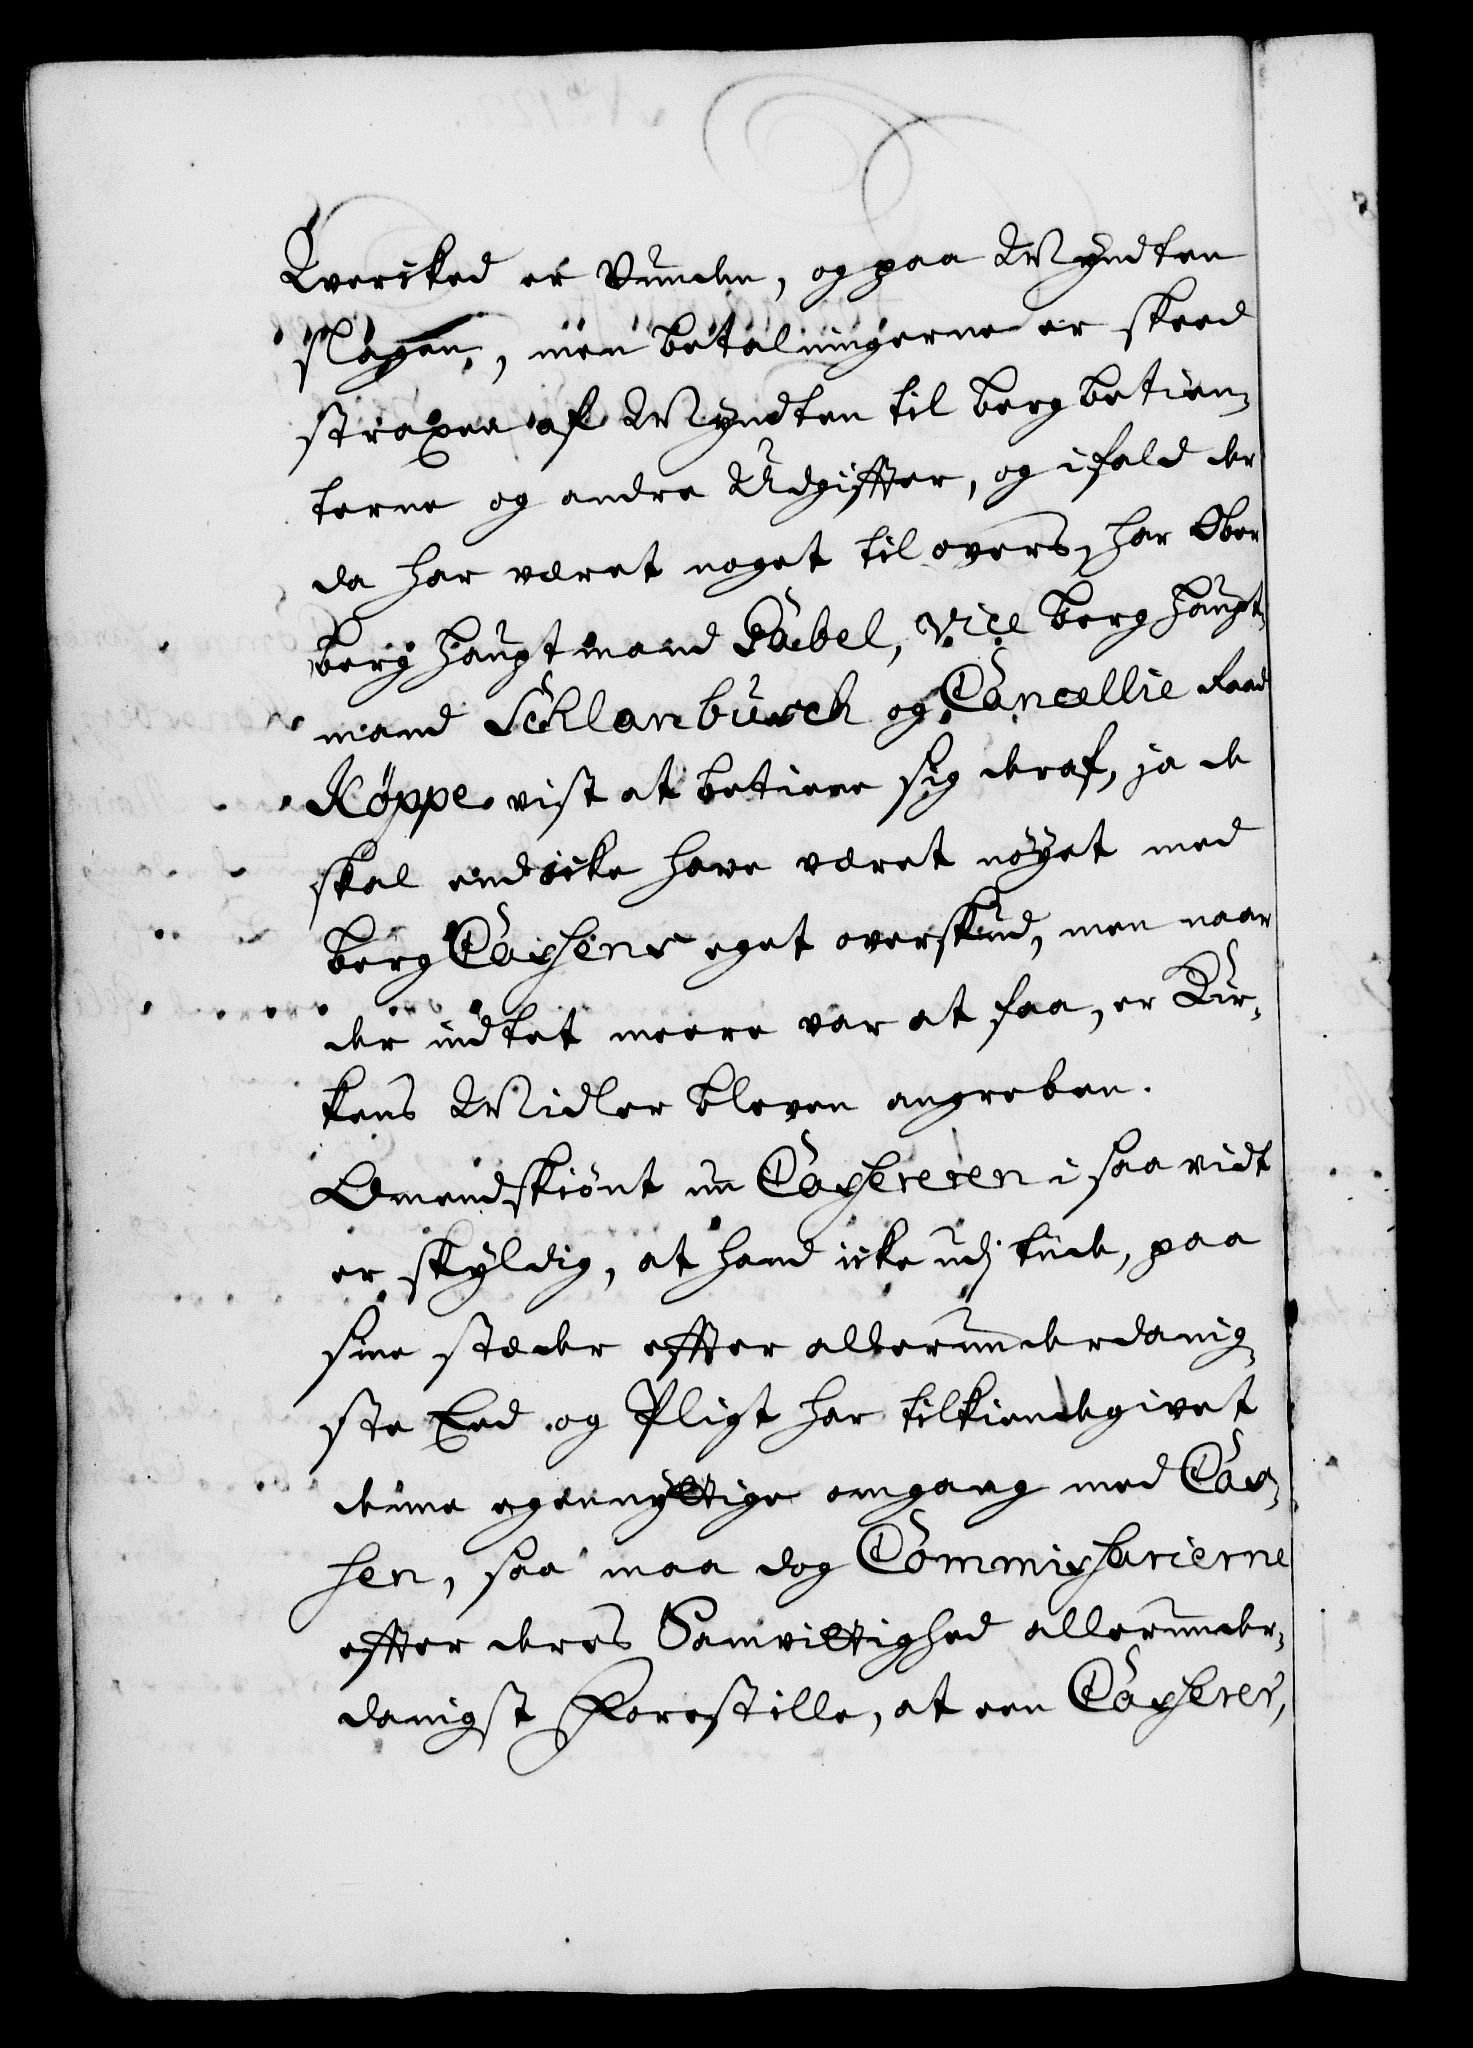 Qvorsked er Vunden, og paa Myndten
slagen, men betalningerne er skeed
straxen af Myndten til berg betien¬
terne og andre Udgiffter, og ifald der
da har været noget til overs, har Ober
berg Haupt mand Pabel, Vice berg Haupt¬
mand Schlanbusch og Cancellie Raad
Köppe vist at betiene sig deraf, ja de
skal end icke have været nöyet med
berg Cassens eget overskud, men naar
der indtet meere var at faa, er Kir¬
kens Midler bleven angreben.
Omendskiönt nu Cassereren i saa vidt
er skyldig, at hand icke udj tiide, paa
sine stæder effter allerunderdanig¬
ste Eed og Pligt har tilkiendegivet
denne egennyttige omgang med Cas¬
sen, saa maa dog Commissarierne
effter deres Samvittighed allerunder¬
danigst Forestille, at een Casserer,